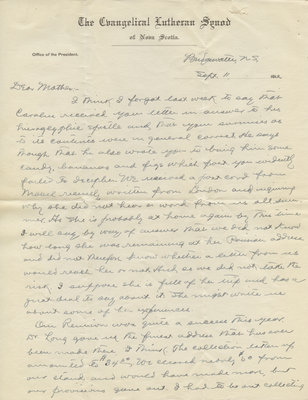 The Evangelical Lutheran Synod
of Nova Scotia.
Office of the President.
Bridgewater, N.S.
Sept. 11
Dear Mother,-
I think I forgot last week to say that
received your letter in answer to his
hieroglyphic epistle and that your surmises as
to its contents were in general correct. He says
though that he also wrote you to bring him some
candy, bananas and figs which part you evidently
failed to decipher. We received a post card from
Mabel recently, written from London and inquiring
why she did not hear a word from us all sum-
mer. As she is probably at home again by this time
I will say by way of answer that we did not know
how long she was remaining at her address
and did not therefore know whether a letter from us
would reach her or not and so we did not take the
risk. I suppose she is full of her trip and has a
great deal to say about it. She might write us
about some of her experiences.
Our Reunion was quite a success this year.
Dr Long gave us the finest address that has ever
been made there I think. The collection taken up
amounted to We cleared nearly from
our stand and would have made more, but
our provisions gave out. I had to be out collecting